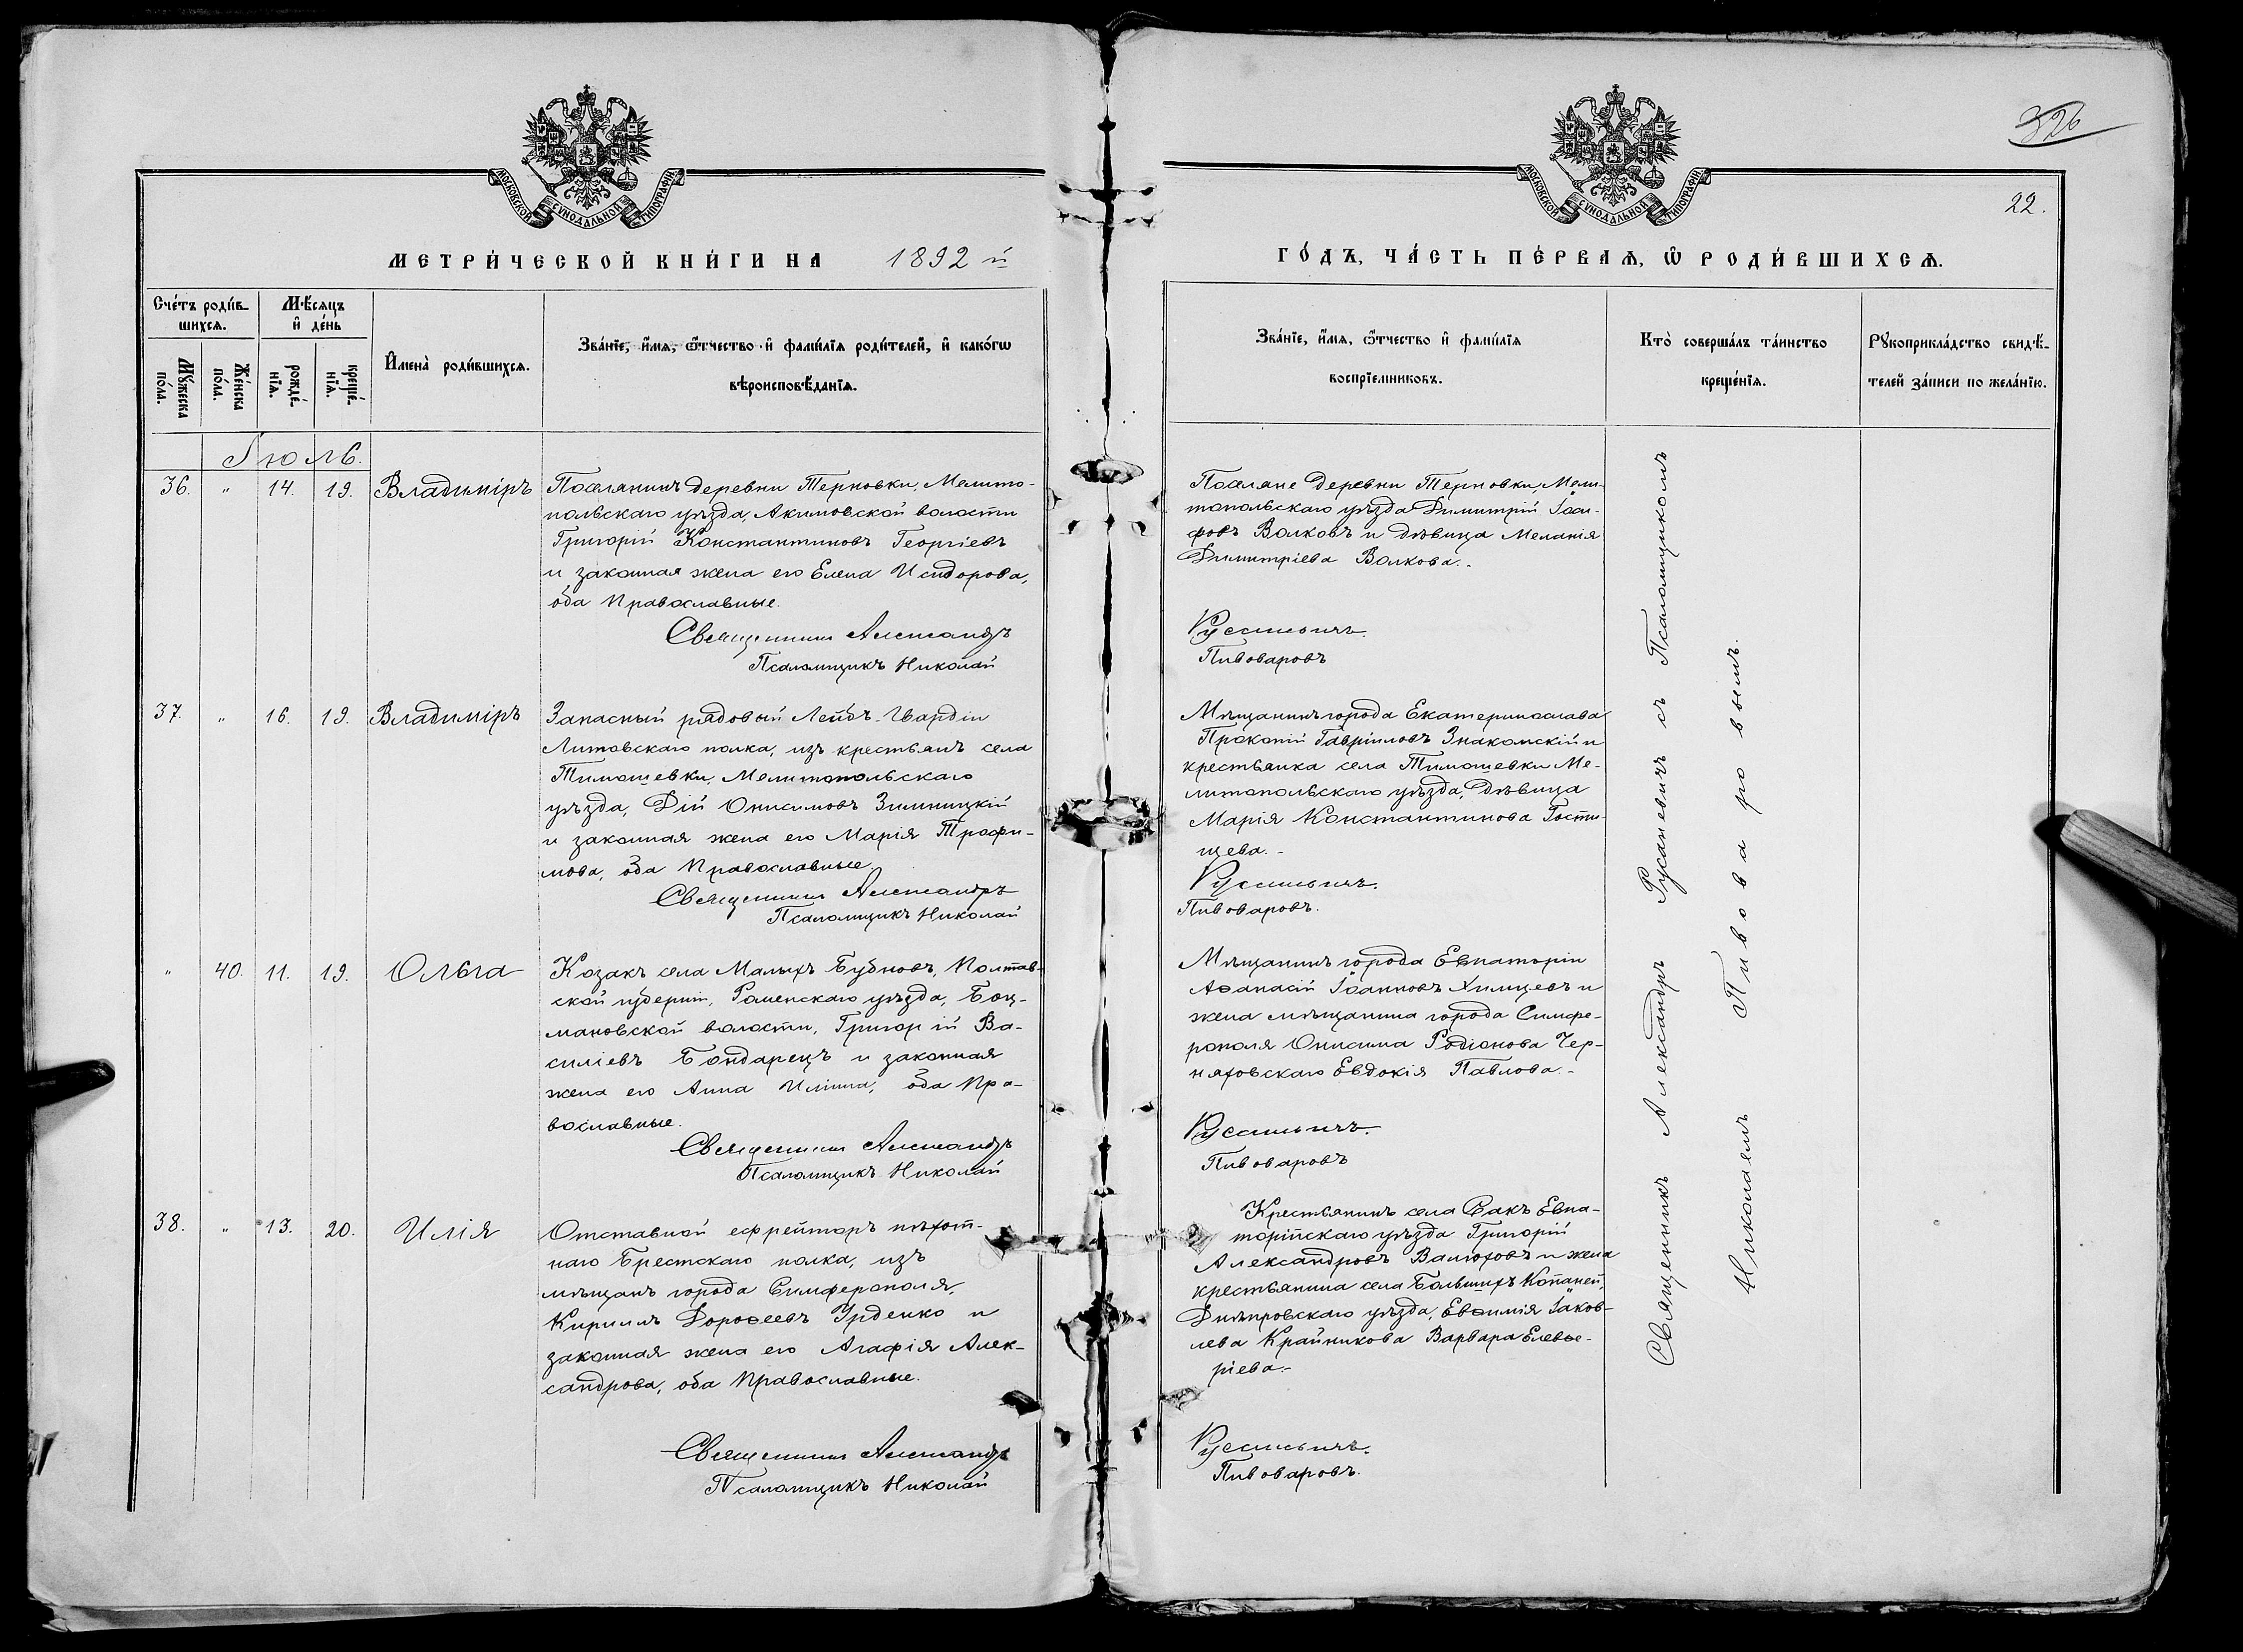 МОСКОВСКОЙ СѴНОДАЛЬНОЙ ТИПОГРАФІИ
МЕТРИ́ЧЕСКОЙ КНИ́ГИ НА 1892 й
Сче́тъ роди́в-
шихсѧ.
Мѣ́сяцъ
и҆ де́нь
Мꙋ́жеска
по́ла.
Же́нска
по́ла.
рожде́-
нїѧ.
креще́-
нїѧ.
И҆мена̀ роди́вшихсѧ.
Зва́нїе, и҆́мѧ, ѻ҆́тчество и҆ фами́лїѧ роди́телей, и҆ како́гѡ
вѣроисповѣ́данїѧ.
Іюль.
36. " 14. 19. Владиміръ
Поселянинъ деревни Терновки, Мелито-
польскаго уѣзда, Акимовской волости
Григорій Константиновъ Георгіевъ
и законная жена его Елена Исидорова,
оба Православные.
Священникъ Александръ
Псаломщикъ Николай
37. " 16. 19. Владиміръ
Запасный рядовый Лейбъ-Гвардіи
Литовскаго полка, изъ крестьянъ села
Тимошевки, Мелитопольскаго
уѣзда, Дій Онисимовъ Зимницкій
и законная жена его Марія Трофи-
мова, оба Православные.
Священникъ Александръ
Псаломщикъ Николай
" 40. 11. 19. Ольга
Козакъ села Малыхъ Бубновъ, Полтав-
ской губерніи, Роменскаго уѣзда, Боц-
мановской волости, Григорій Ва-
силіевъ Бондарецъ и законная
жена его Анна Иліина, оба Пра-
вославные.
Священникъ Александръ
Псаломщикъ Николай
38. " 13. 20. Илія
Отставной ефрейторъ пѣхот-
наго Брестскаго полка, изъ
мѣщанъ города Симферополя,
Кириллъ Дороѳеевъ Урденко и
законная жена его Агафія Алек-
сандрова, оба Православные.
Священникъ Александръ
Псаломщикъ Николай
326
22.
МОСКОВСКОЙ СѴНОДАЛЬНОЙ ТИПОГРАФІИ
ГО́ДЪ, ЧА́СТЬ ПЕ́РВАѦ, Ѡ҆ РОДИ́ВШИХСѦ.
Зва́нїе, и҆́мѧ, ѻ҆́тчество и҆ фами́лїѧ
воспрїе́мниковъ.
Кто̀ соверша́лъ та́инство
креще́нїѧ.
Рꙋкоприкла́дство свидѣ́-
телей за́писи по жела́нїю.
Поселяне деревни Терновки, Мели-
топольскаго уѣзда Димитрій Іоси-
фовъ Волковъ и дѣвица Меланія
Димитріева Волкова.-
Русаневичъ.
Пивоваровъ
Мѣщанинъ города Екатеринослава
Прокопій Гавріиловъ Знакомскій и
крестьянка села Тимошевки Ме-
литопольскаго уѣзда, дѣвица
Марія Константинова Гости-
щева.-
Русаневичъ.
Пивоваровъ.
Мѣщанинъ города Евпаторіи
Аѳанасій Іоанновъ Химцевъ и
жена мѣщанина города Симфе-
рополя Онисима Родіонова Чер-
няховскаго Евдокія Павлова.-
Русаневичъ.
Пивоваровъ
Крестьянинъ села Сакъ Евпа-
торійскаго уѣзда Григорій
Александровъ Валюховъ и жена
крестьянина села Большихъ Копаней,
Днѣпровскаго уѣзда, Евѳимія Іаков-
лева Крайникова Варвара Елевѳе-
ріева.-
Русаневичъ.
Пивоваровъ.
Священникъ Александръ Русаневичъ съ Псаломщикомъ
Николаемъ Пивоваровымъ.